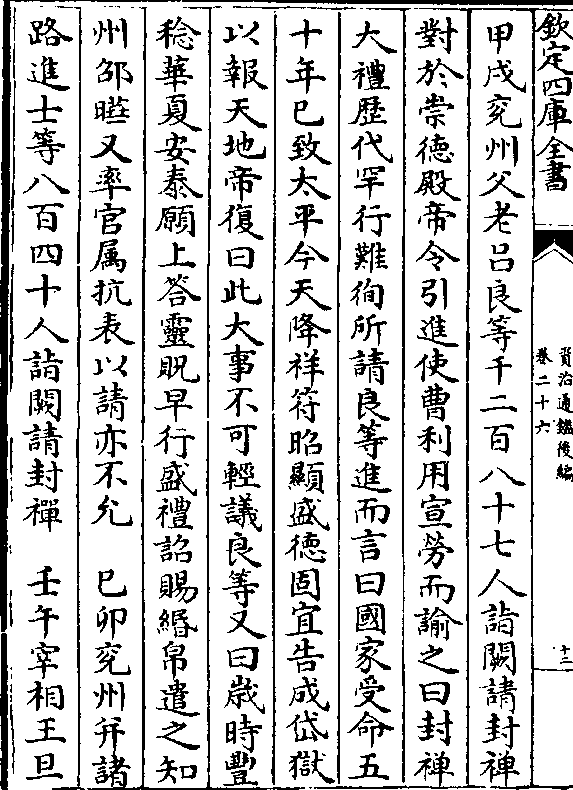 欽定四庫全書
資治通鑑後編
卷二十六
十三
甲戌兖州父老吕良等千二百八十七人詣闕請封禪
對於崇德殿帝令引進使曹利用宣勞而諭之曰封禪
大禮歴代罕行難徇所請良等進而言曰國家受命五
十年已致太平今天降祥符昭顯盛德固宜告成岱嶽
以報天地帝復曰此大事不可輕議良等又曰嵗時豐
稔華夏安泰願上答靈貺早行盛禮詔賜緡帛遣之知
州邵曄又率官属抗表以請亦不允　己卯兖州并諸
路進士等八百四十人詣闕請封禪　壬午宰相王旦